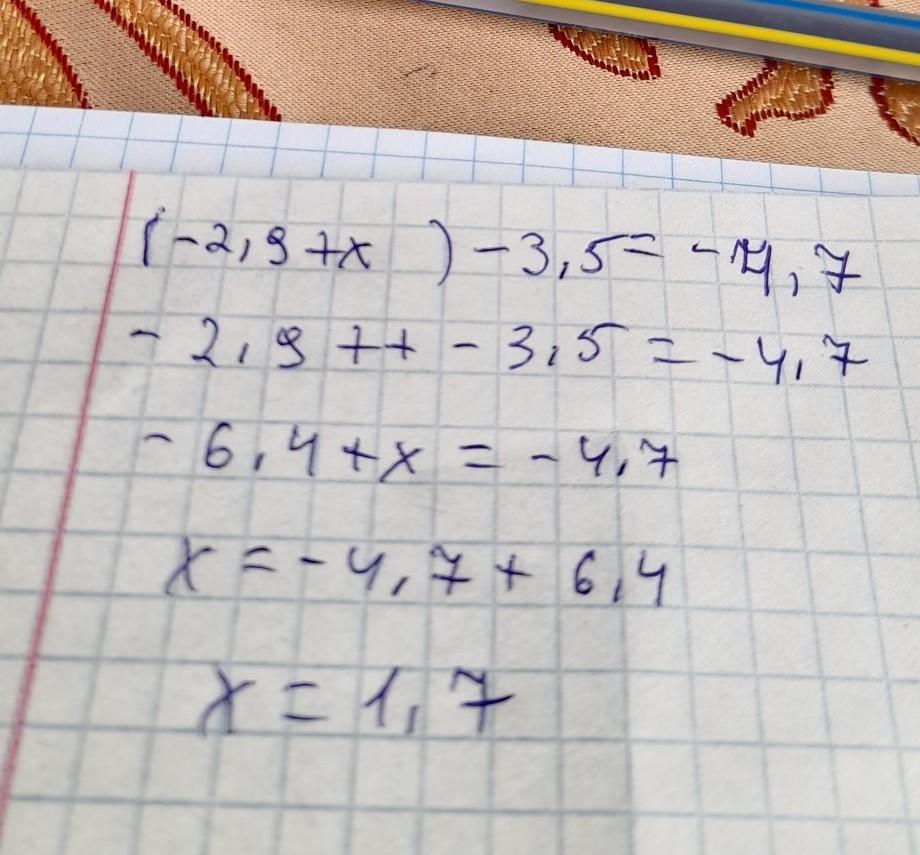 (-2,9+x ) -3,5= -4,7
- 2,9 ++ - 3,5 = -4,7
- 6,4+x = -4,7
x = -4,7+ 6,4
x = 1,7